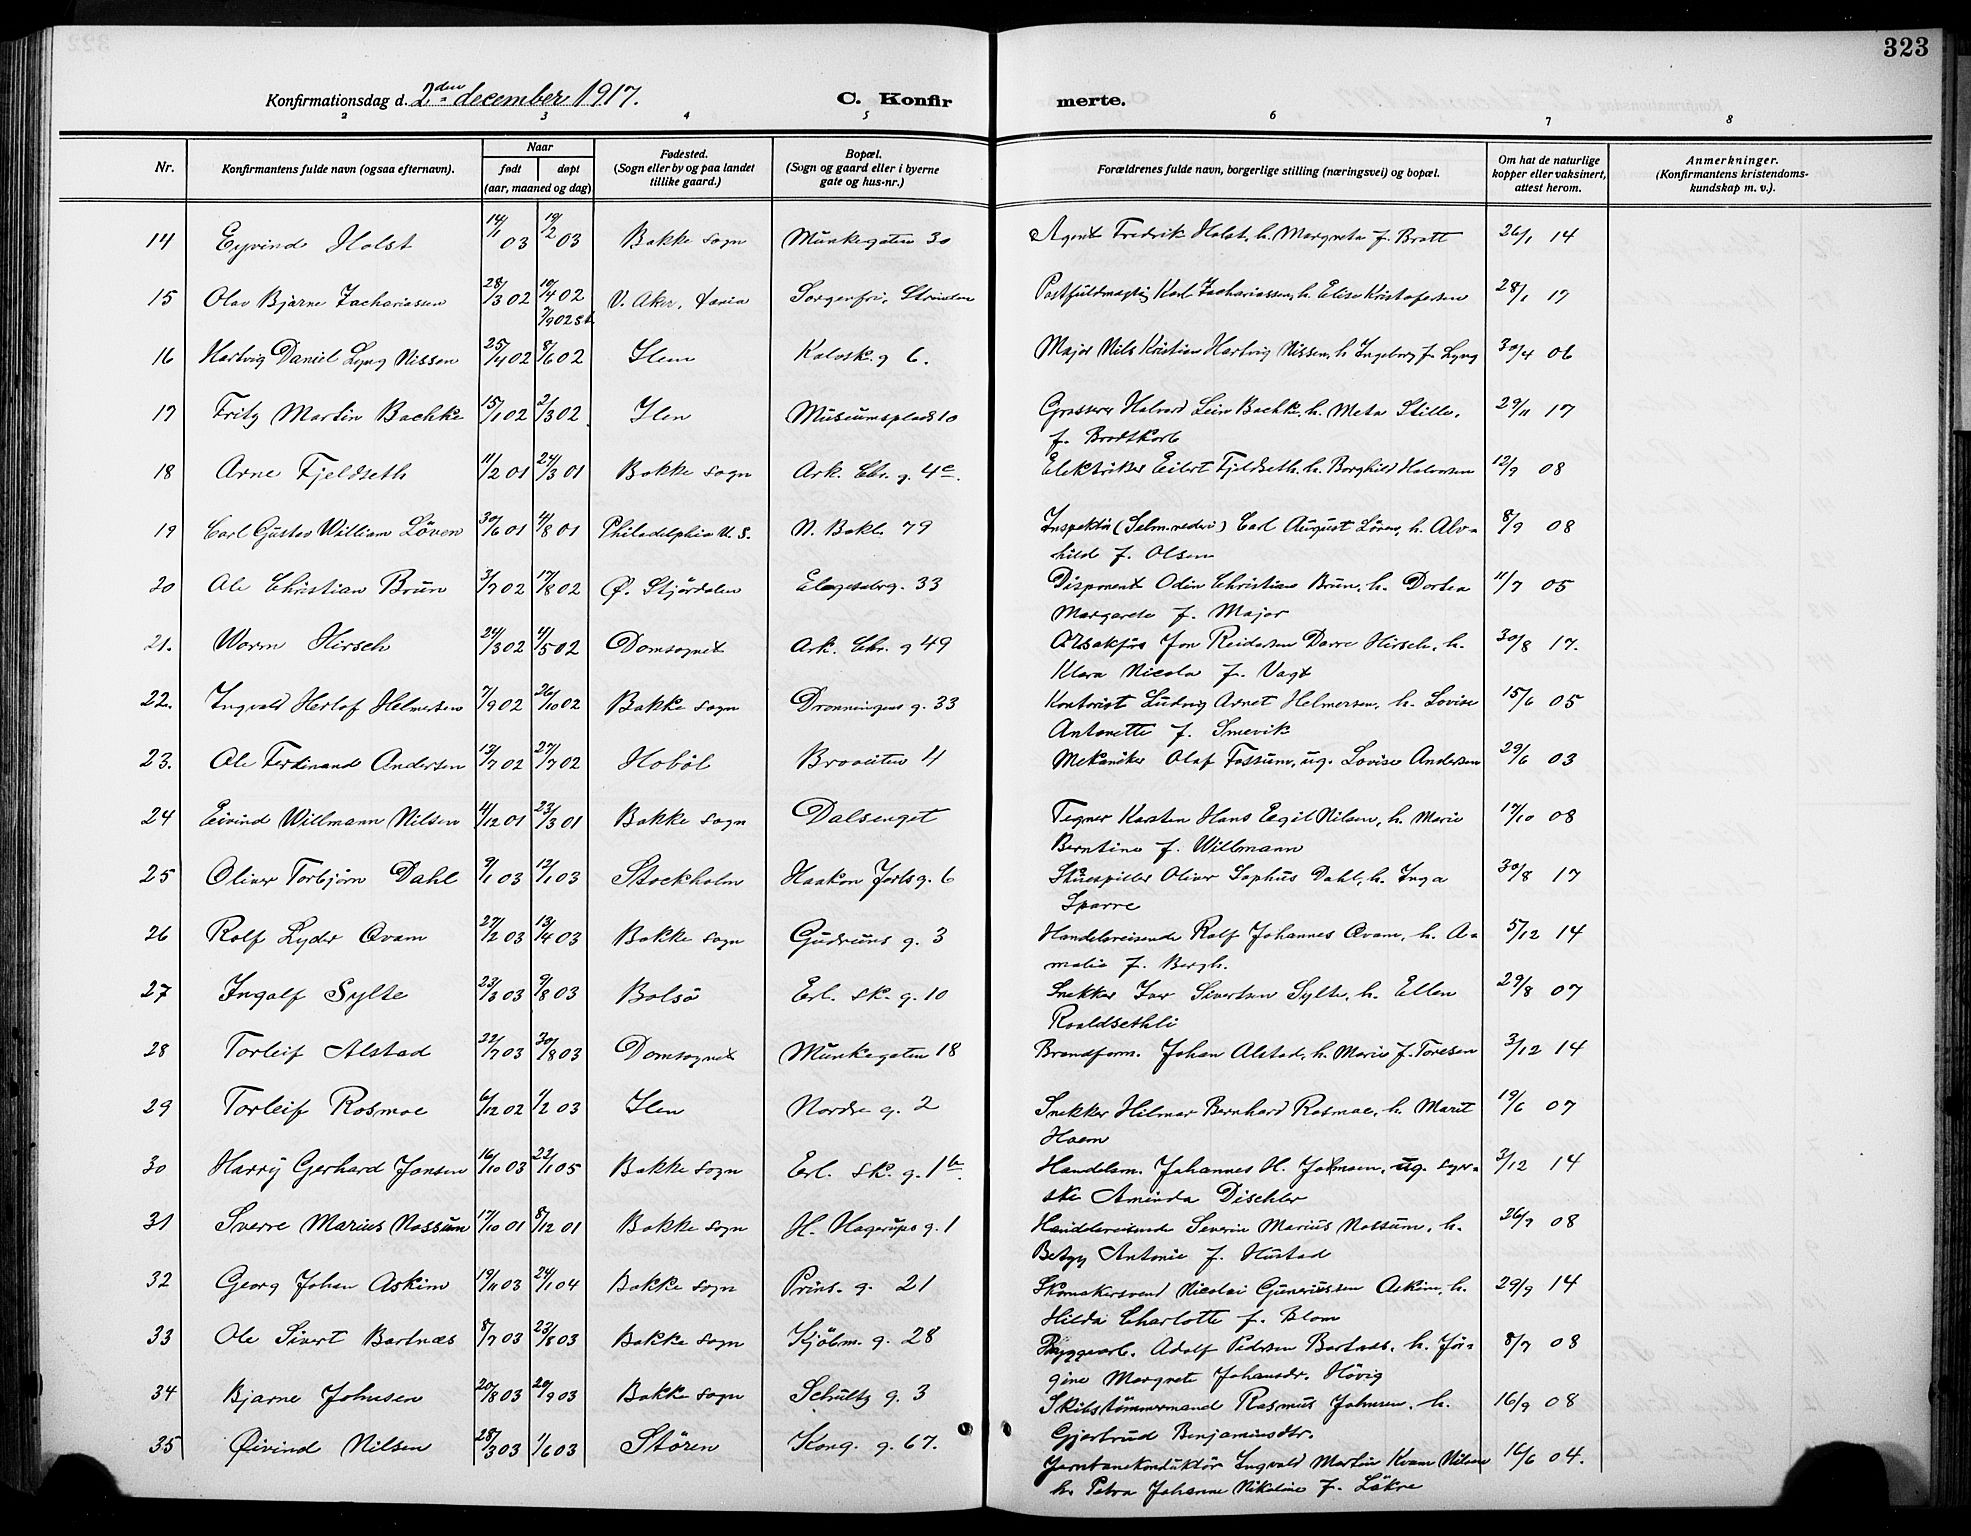 323
Konfirmationsdag d. 2den december 1917. C. Konfir merte.
2 3 4 5 6 7 8
Nr. Konfirmantens fulde navn (ogsaa efternavn). Naar født døpt (aar, maaned og dag) Fødested. (Sogn eller by og paa landet tillike gaard.) Bopæl. (Sogn og gaard eller i byerne gate og hus-nr.) Forældrenes fulde navn, borgerlige stilling (næringsvei) og bopæl. Om hat de naturlige kopper eller vaksinert, attest herom. Anmerkninger. (Konfirmantens kristendoms-kundskap m. v.).
14 Eyvind Holst 14/1 03 19/2 03 Bakke sogn Munkegaten 30 Agent Fredrik Holst, h. Margreta f. Bratt 26/1 14
15 Olav Bjarne Zachariassen 28/3 02 10/4 02 V. Aker, Sorgenfri, Strinden Postfuldmægtig Karl Zachariassen, h. Elise Kristofersen 28/1 17
7/9 02 st.
16 Hartvig Daniel Lyng Nissen 25/4 02 8/6 02 Ilen Kalvsk. g 6. Major Nils Kristian Hartvig Nissen, h Ingeborg f. Lyng 30/4 06
17 Fritz Martin Bachke 15/1 02 2/3 02 Ilen Museumsplads 10 Grosserer Halvard Bachke, h. Meta Stille,
f. Brodtkorb 29/11 17
18 Arne Fjeldseth 11/2 01 24/3 01 Bakke sogn Ark. Chr. g. 4c. Elektriker Eilert Fjeldseth, h. Borghild Halvorsen 12/9 08
19 Carl Gustav William Löven 30/6 01 4/8 01 Philadelphia U. S. N. Bakl. 79 Inspektör Carl August Löven, h. Alv-
hild f. Olsen 8/9 08
20 Ole Christian Brun 3/7 02 17/8 02 Ø. Stjördalen 33 Disponent Odin Christian Brun, h. Dortea
Margarete f. Major 11/7 05
21. Worm Hirsch 24/3 02 4/5 02 Domsognet Ark. Chr. g 49 O.R.sakförer Jon Reidersen Darre Hirsch, h.
Klara Nicola f. Vagt 30/8 17.
22. Ingvald Herlof Helmersen 7/9 02 26/10 02 Bakke sogn Dronningens g. 33 Kontorist Ludvig Arnet Helmersen, h. Lovise
Antonette f. Smevik 15/6 05
23. Ole Ferdinand Andersen 13/7 02 27/7 02 Hobøl Braaliten 4 Mekaniker Olaf Fossum, ug. Lovise Andersen 29/6 03
24 Eivind Willmann Nilsen 4/12 01 23/3 01 Bakke sogn Dalsenget Tegner Karsten Hans Egil Nilsen, h. Marie
Berntine f. Willmann 17/10 08
25 Oliver Torbjørn Dahl 9/1 03 12/1 03 Stockholm Haakon Jarls g. 6 Skuespiller Oliver Sophus Dahl, h. Inga
Sparre 30/8 17
26 Rolf Lyder Qvam 27/2 03 13/4 03 Bakke sogn Gudruns g. 3 Handelsreisende Rolf Johannes Qvam, h. A-
malie f. Bergh. 5/12 14
27 Ingolf Sylte 23/3 03 9/8 03 Bolsö Erl. sk. g. 10 Snekker Ivar Sivertsen Sylte, h. Ellen
Roaldsethli 29/8 07
28 Torleif Alstad 22/7 03 30/8 03 Domsognet Munkegaten 18 Brandform. Johan Alstad, h. Marie f. Toresen 3/12 14
29 Torleif Rosmoe 6/12 02 1/2 03 Ilen Nordre g. 2 Snekker Hilmar Bernhard Rosmoe, h. Marit
Hoem 19/6 07
30 Harry Gerhard Jansen 16/10 03 22/1 05 Bakke sogn Erl. sk. g. 1b. Handelsm. Johannes H. Johnsen, ug. syer-
ske Aminda Dischler 3/12 14
31 Sverre Marius Nossum 17/10 01 8/12 01 Bakke sogn H. Hagerups g. 1 Handelsreisende Severin Marius Nossum, h.
Betzy Antonie f. Hustad 26/9 08
32 Georg Johan Askim 19/11 03 24/1 04 Bakke sogn Prins. g. 21 Skomakersvend Nicolai Guneriussen Askim, h.
Hilda Charlotte f. Blom 29/9 14
33 Ole Sivert Bartnæs 8/7 03 23/8 03 Bakke sogn Kjöbm. g. 28 Bryggearb. Adolf Pedersen Bartnæs, h. Jör-
gine Margrete Johansdr. Hövig 8/7 08
34 Bjarne Johnsen 20/8 03 20/9 03 Bakke sogn Schultz g. 3 Skibstömmermand Rasmus Johnsen, h.
Gjertrud Benjaminsdtr. 16/9 08
35 Øivind Nilsen 28/3 03 1/6 03 Stören Kong. g. 67. Jernbanekonduktör Ingvald Martin Kvam Nilsen
h. Petra Johanne Nikoline f. Lökre 16/6 04.